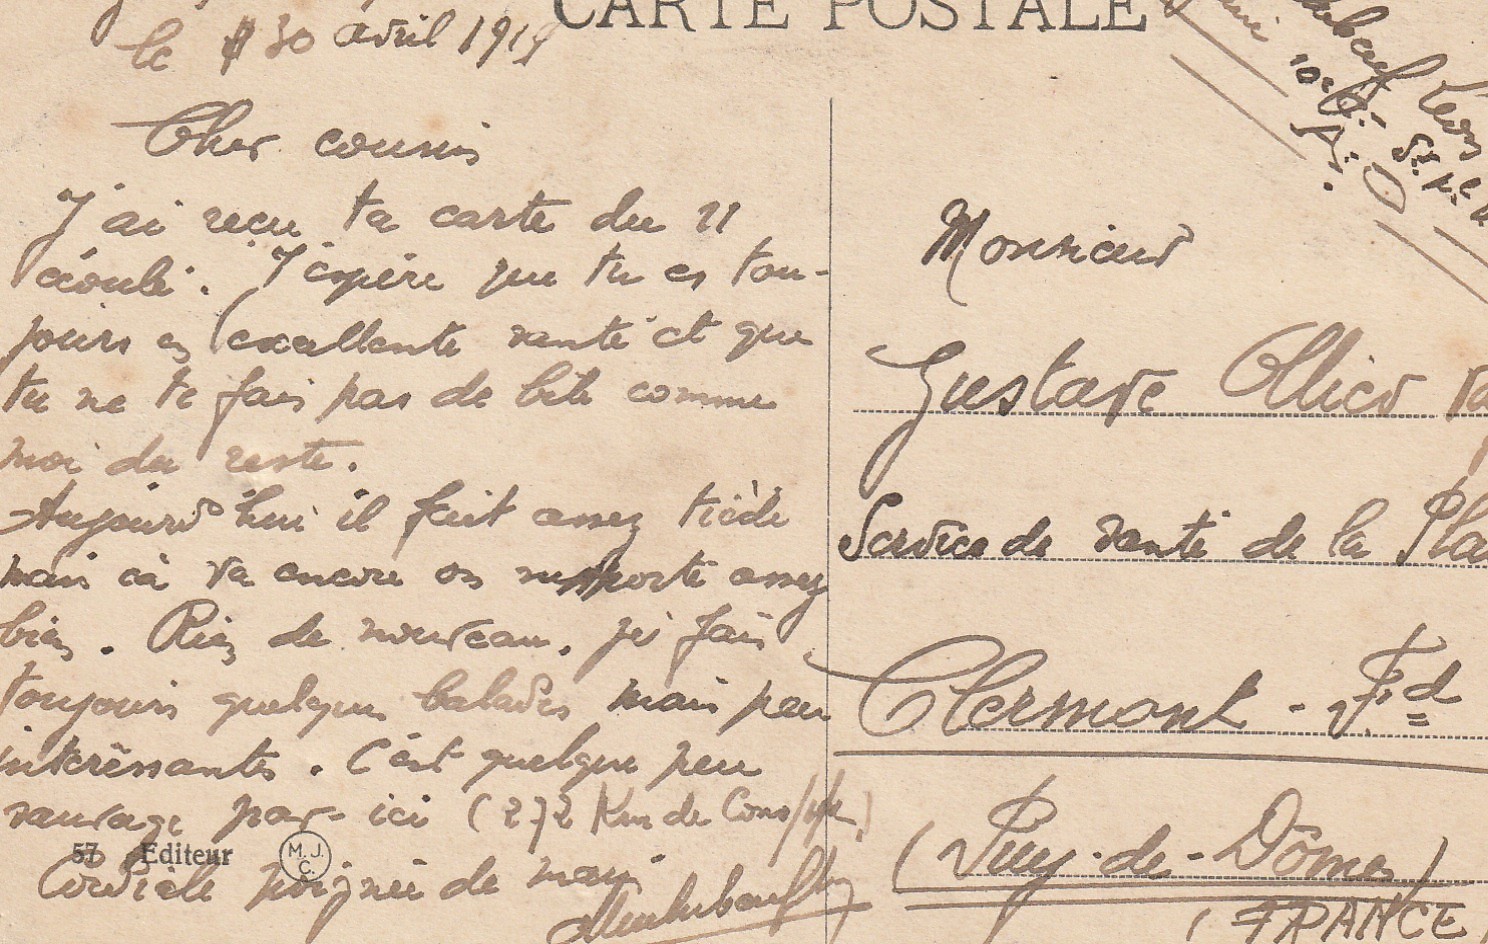 CARTE POSTALE
le 30 avril 1919
Cher cousin
J'ai reçu ta carte du 11
écoulé. J'espère que tu es tou-
jours en excellente santé et que
tu ne te fais pas de bile comme
moi du reste.
Aujourd'hui il fait assez tiède
mais cà va encore on supporte assez
bien. Rien de nouveau. je fais
toujours quelques balades mais peu
intérèssantes. C'est quelque peu
sauvage par-ici (272 Km de Cons/ple)
57 Editeur M.J.C.
Cordiale poignée de main
Léon
10e
Monsieur
Gustave Ollier
Service de santé de la Pla
Clermont-Fd
(Puy-de-Dôme)
(FRANCE)